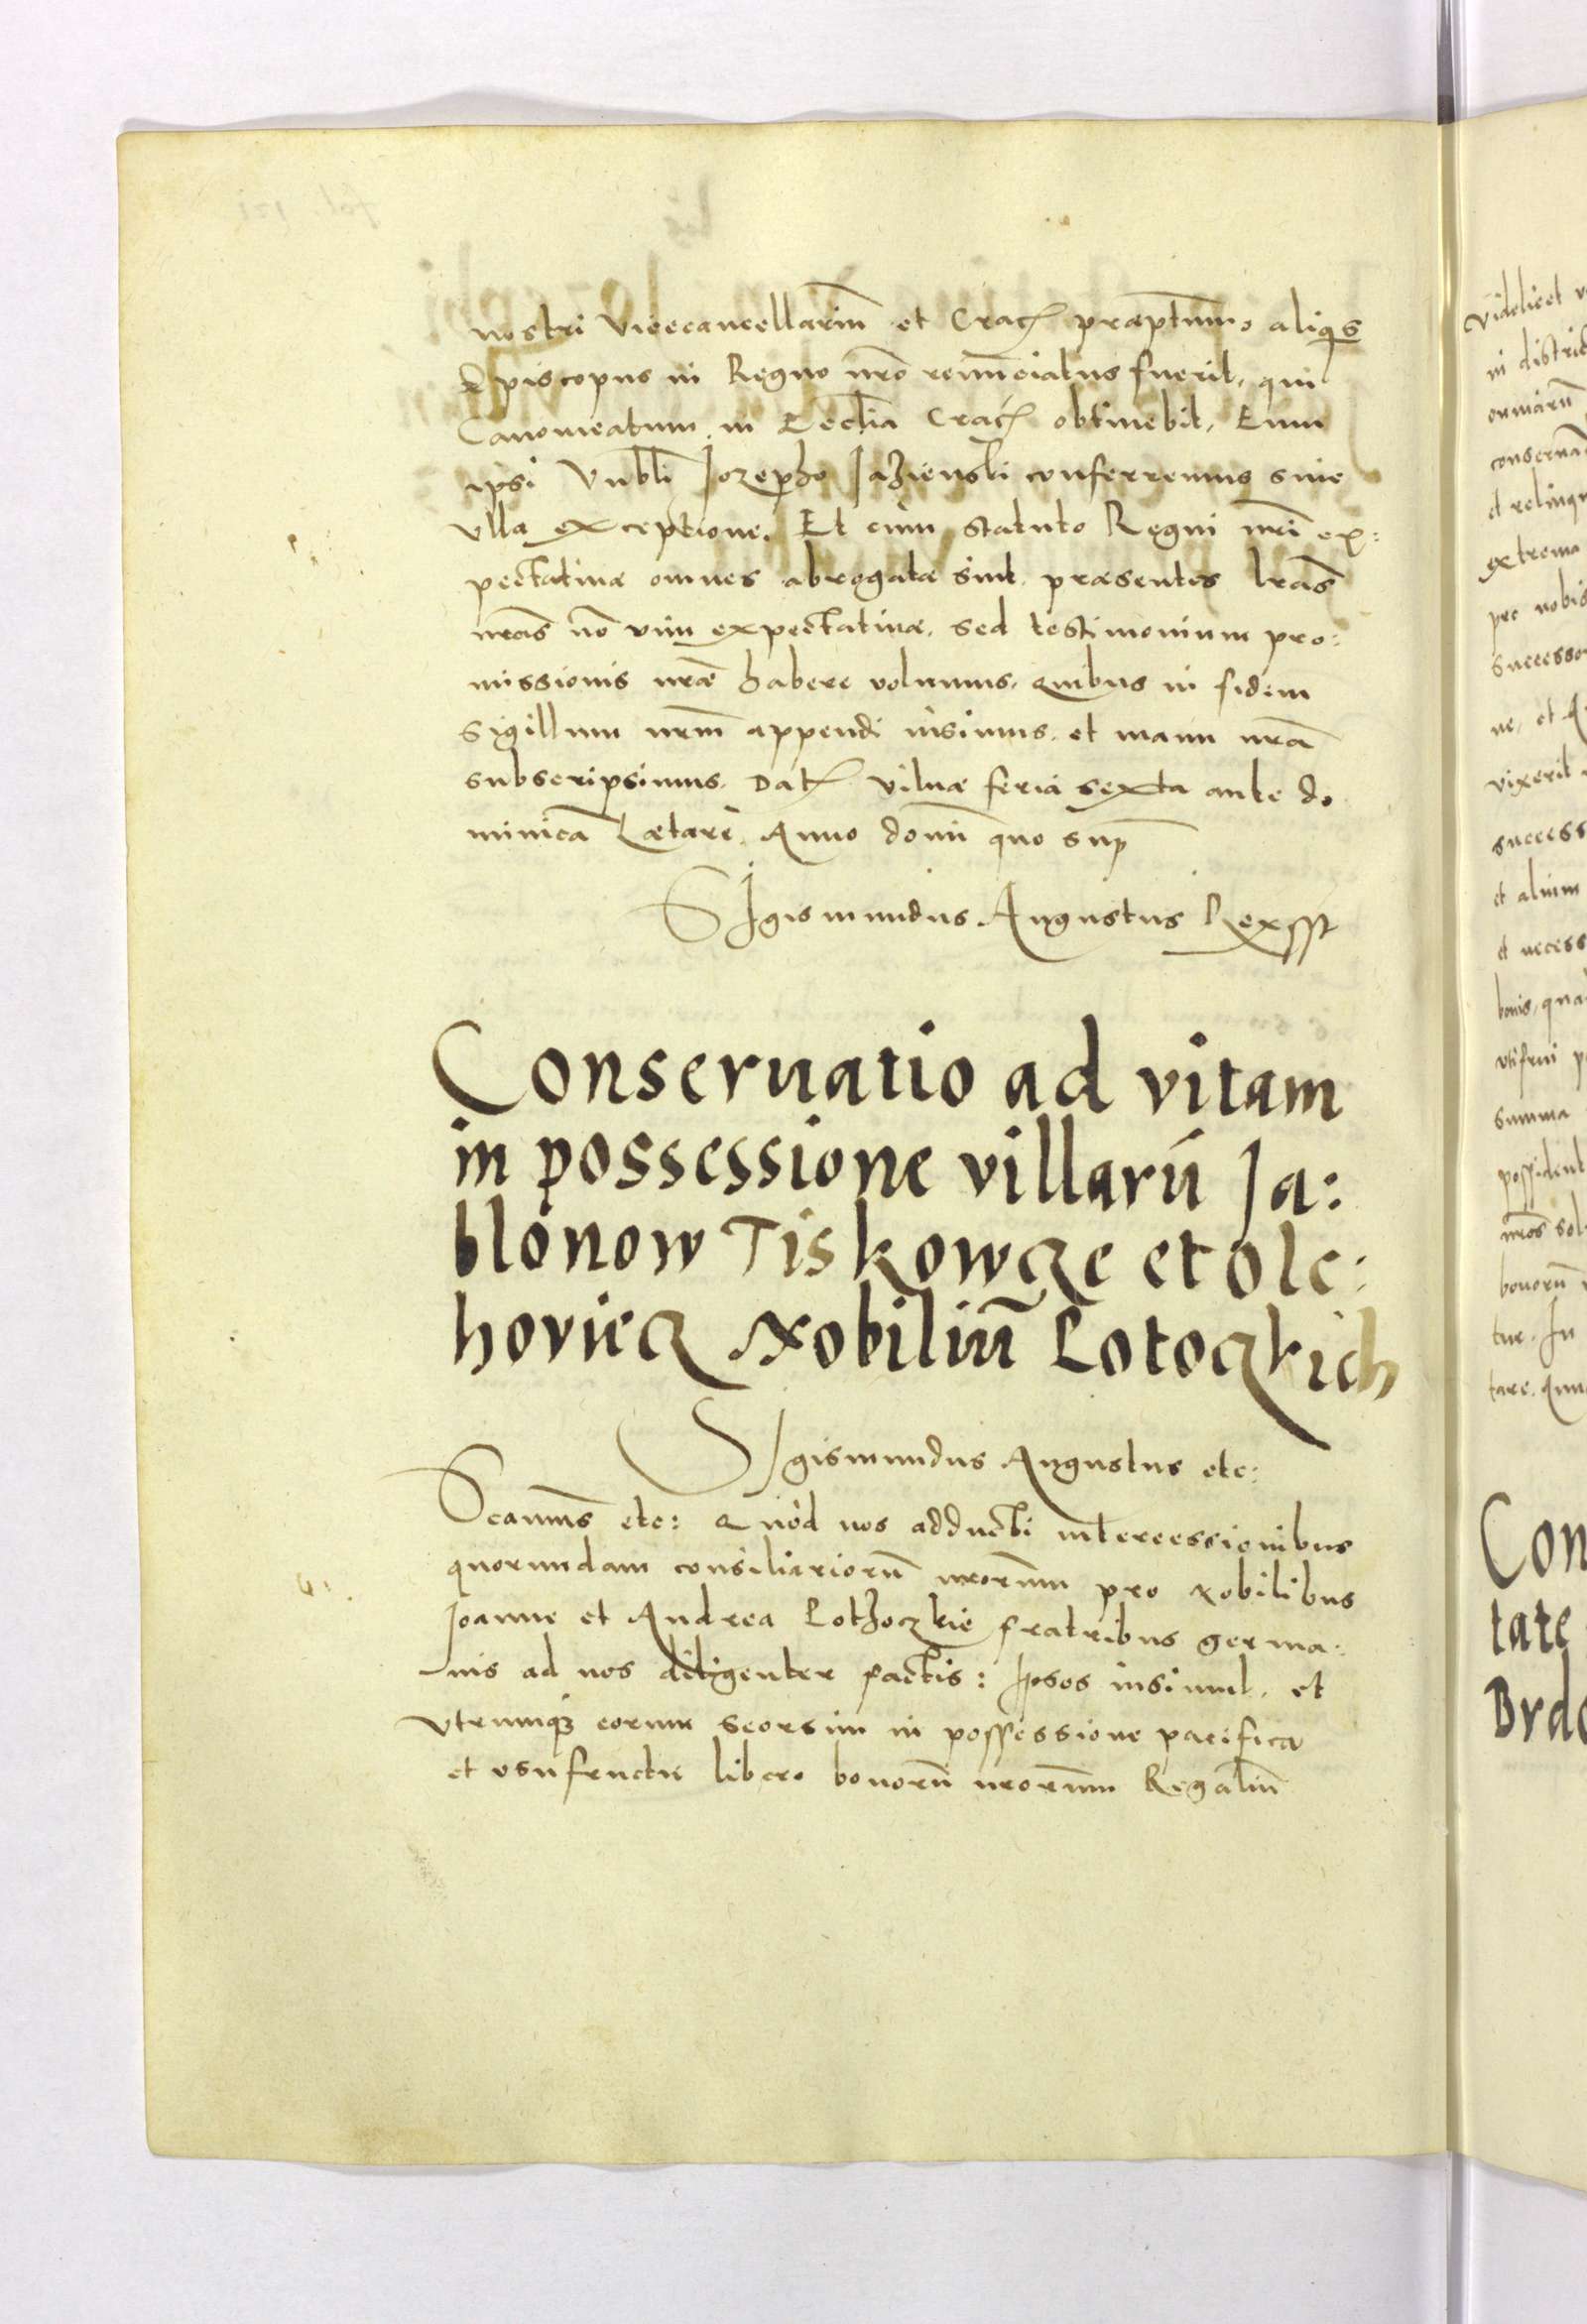 nostri Vicecancellariũ et Crac͂ præptũm, aliqis
Episcopus in Regno nrõ renunciatus fuerit, qui
Canonicatum in Ecclĩa Crac͂ obtinebit, Eum
ipsi Vnblĩ Jozepho Jazienski conferremus sine
vlla exceptione. Et cũm statuto Regni nrĩ ex:
pectatiuæ omnes abrogatæ sint, præsentes lrãs
nrãs nõ vim expectatiuæ, sed testimonium pro:
missionis nræ̃ habere volumus, quibus in fidem
sigillum nrm̃ appendi iussimus, et manu nrã
subscripsimus. Dat͂ Vilnæ feria sexta ante do
minicã Lætare, Anno domĩ quo sup̃
Sigismundus Augustus Rex sst
Conseruatio ad vitam
in possessione villarũ Ja:
blonow Tiskowcze et Ole:
howiecz Nobiliũ Lotoczkich
Sigismundus Augustus etc:
Significamus etc: Quòd nos adducti intercessionibus
quorundam consiliariorũ nrorũm pro Nobilibus
Joanne et Andrea Lothoczkie fratribus germa:
nis ad nos diligenter factis: Ipsos insimul, et
vtrumqȝ eorum seorsim in possessione pacifica
et vsufructu libero bonorũ nrorũm Regaliũ
videlicet
in distri
conseruã
et relinqu
extrema
pro nobis
successo
ne, et
vixerit
success
et alium
et necess
bonis, qua
vtifrui p
summa
possident
nrõs sol
bonorũ
tur. In
tare.
Con
tate
Brdo